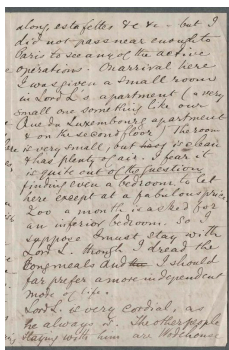 along, estafettes &c &c – but I
did not pass near enough to
Paris to see any of the active
operations. On arrival here
I was given a small room
in Lord L's apartment (a very
small one something like our
Rue du Luxembourg apartment
& on the second floor) The room
is very small, but is clean
& has plenty of air. I fear it
is quite out of the question
finding even a bedroom to let
here except at a fabulous price
200 a month is asked for
an inferior bedroom. So I
suppose I must stay with
Lord L. though I dread the
long meals and I should
far prefer a more independent
mode of life.
Lord L. is very cordial, as
he always is. The other people
staying with him are Wodehouse